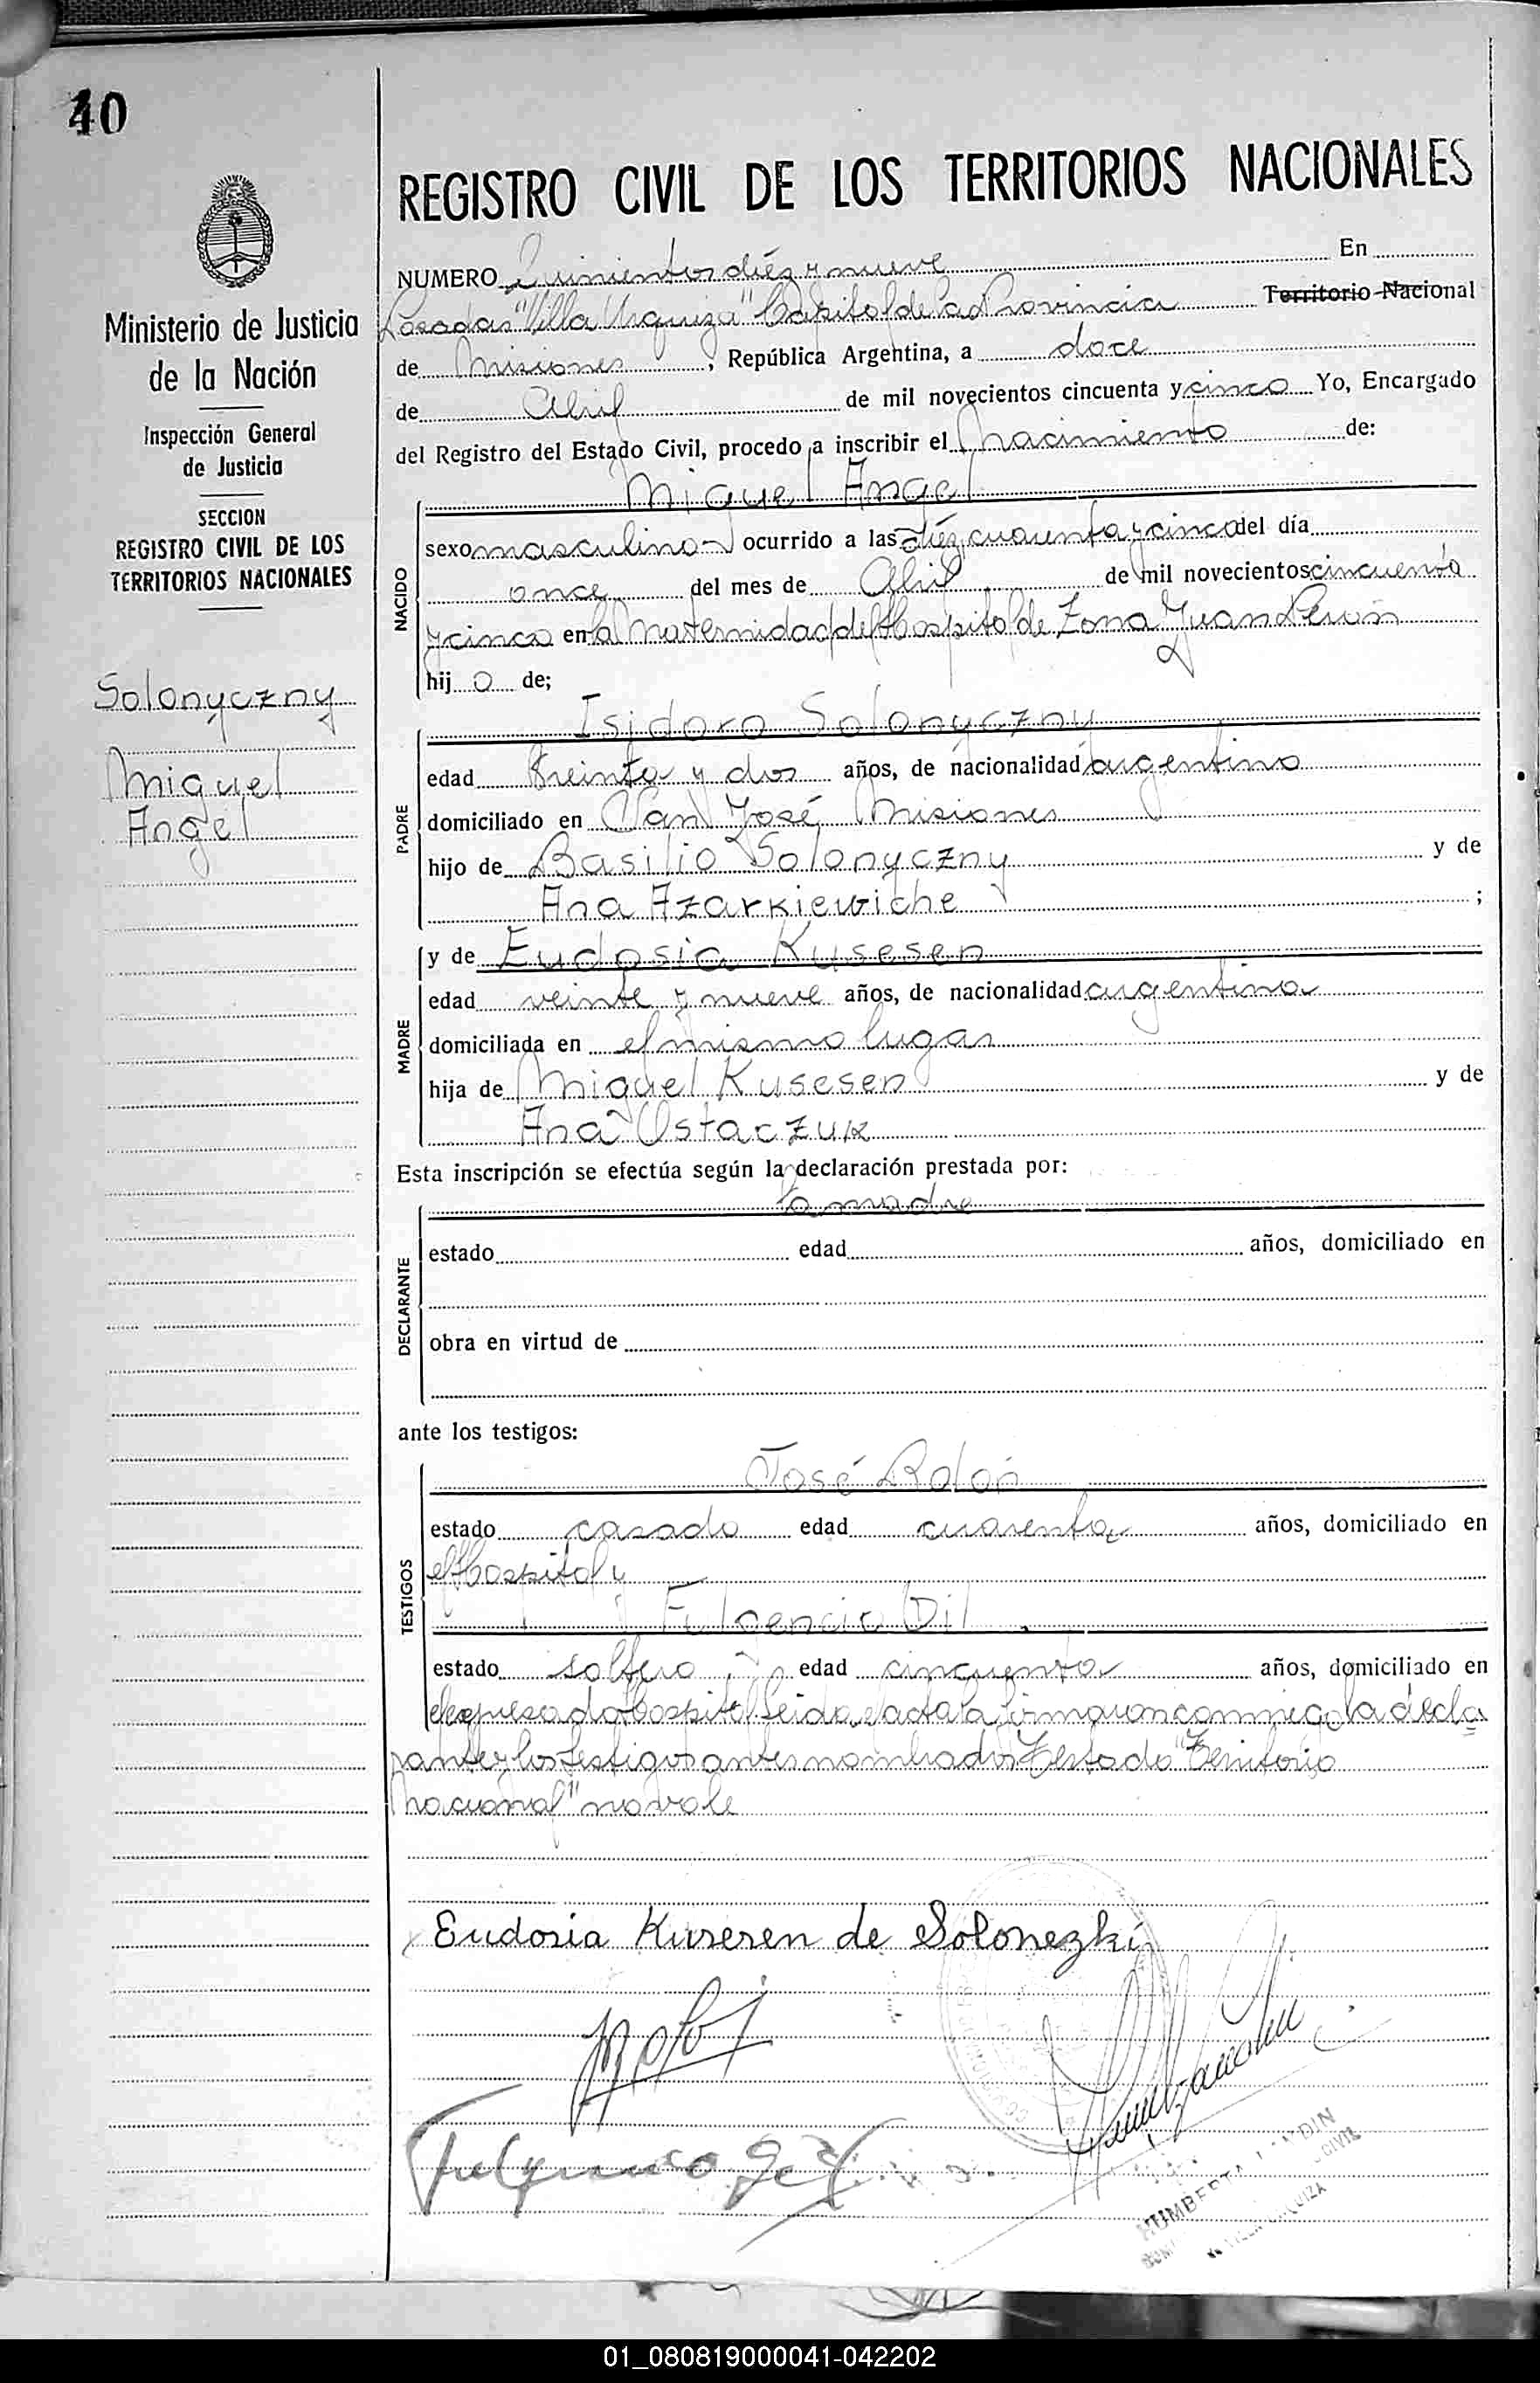 40
REGISTRO CIVIL DE LOS TERRITORIOS NACIONALES
Ministerio de Justicia
de la Nación
Inspección General
de Justicia
SECCION
REGISTRO CIVIL DE LOS
TERRITORIOS NACIONALES
Solonyczny
Miguel
Angel
NUMERO Quinientos diéz y nueve En
Posadas "Villa Urquiza" Capital de la Provincia Territorio Nacional
de Misiones, República Argentina, a doce
de Abril de mil novecientos cincuenta y cinco Yo, Encargado
del Registro del Estado Civil, procedo a inscribir el nacimiento de:
Miguel Angel
NACIDO
sexo masculino ocurrido a las diéz, cuarenta y cinco del día
once del mes de Abril de mil novecientos cincuenta
y cinco en la Maternidad del Hospital de Zona Juan Perón
hij o de;
Isidoro Solonyczny
PADRE
edad treinta y dos años, de nacionalidad argentino
domiciliado en San José, Misiones
hijo de Basilio Solonyczny y de
Ana Azarkiewiche ;
y de Eudosia Kusesen
MADRE
edad veinte y nueve años, de nacionalidad argentina
domiciliada en el mismo lugar
hija de Miguel Kusesen y de
Ana Ostaczuk
Esta inscripción se efectúa según la declaración prestada por:
la madre
DECLARANTE
estado edad años, domiciliado en
obra en virtud de
ante los testigos:
José Rolón
TESTIGOS
estado casado edad cuarenta años, domiciliado en
el Hospital y
Fulgencio Dil
estado soltero edad cincuenta años, domiciliado en
el expresado Hospital leida el acta la firmaron conmigo la decla
rante y los testigos antes nombrados Testado "Territorio
Nacional" no vale
Eudosia Kusesen de Solonezki
Fulgencio Dil
HUMBERTO
CIVIL
01_080819000041-042202